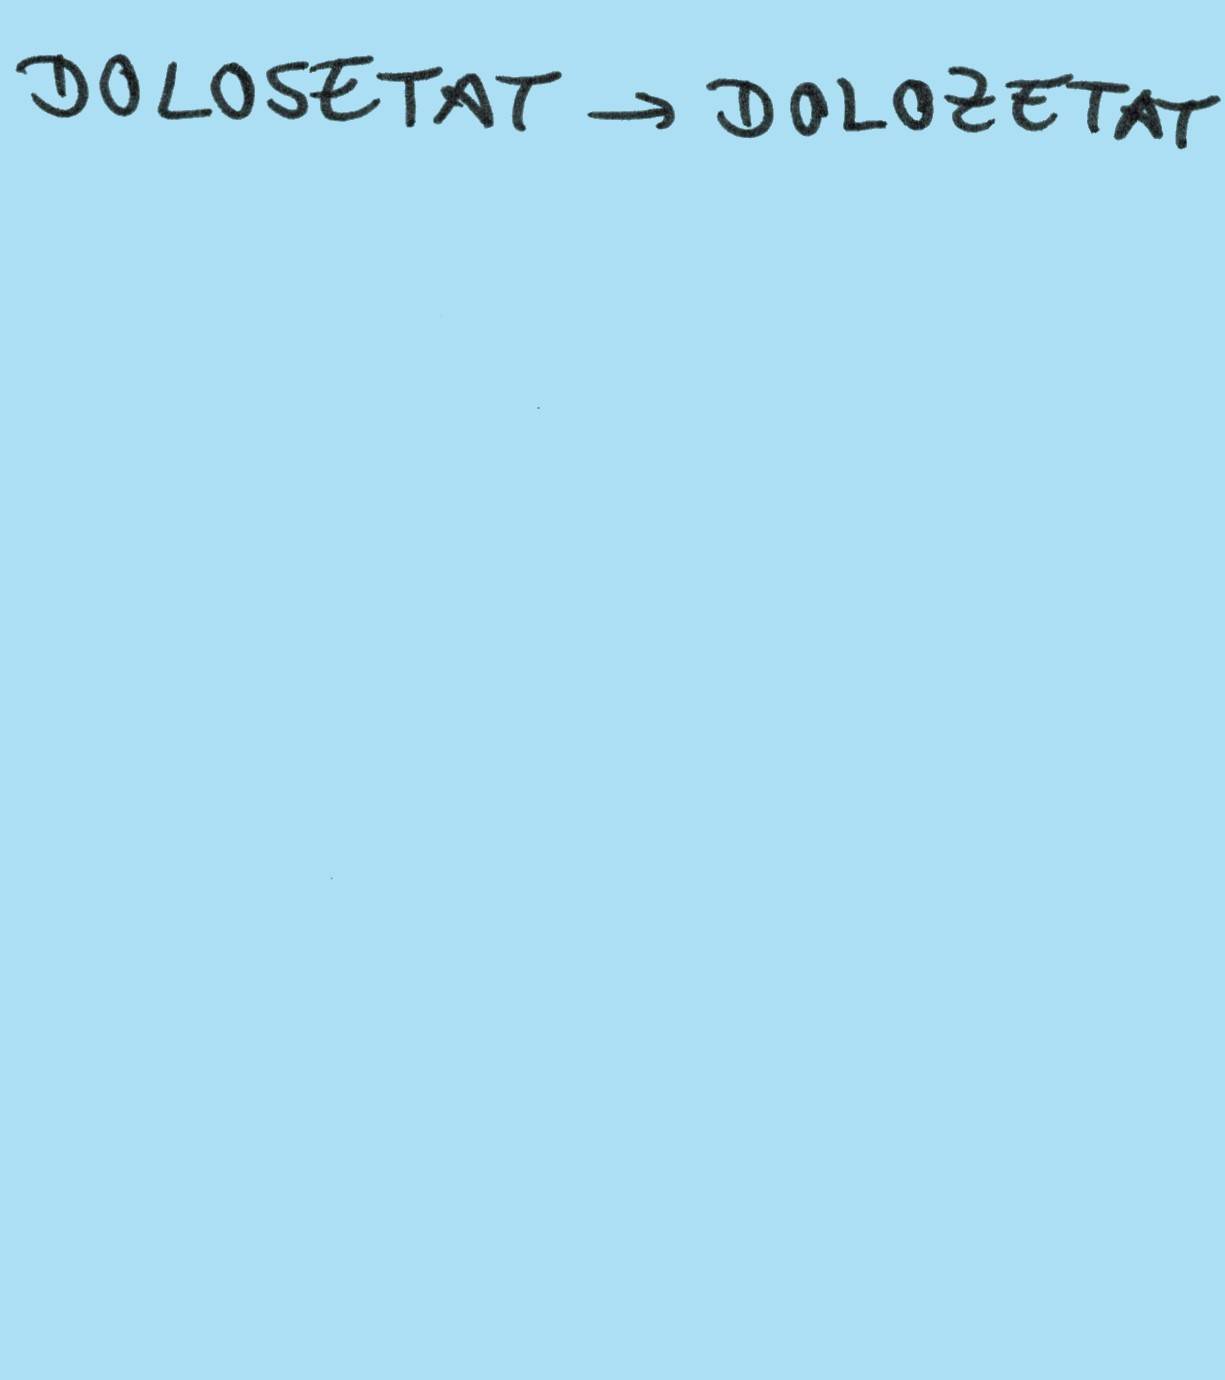 DOLOSETAT → DOLOZETAT